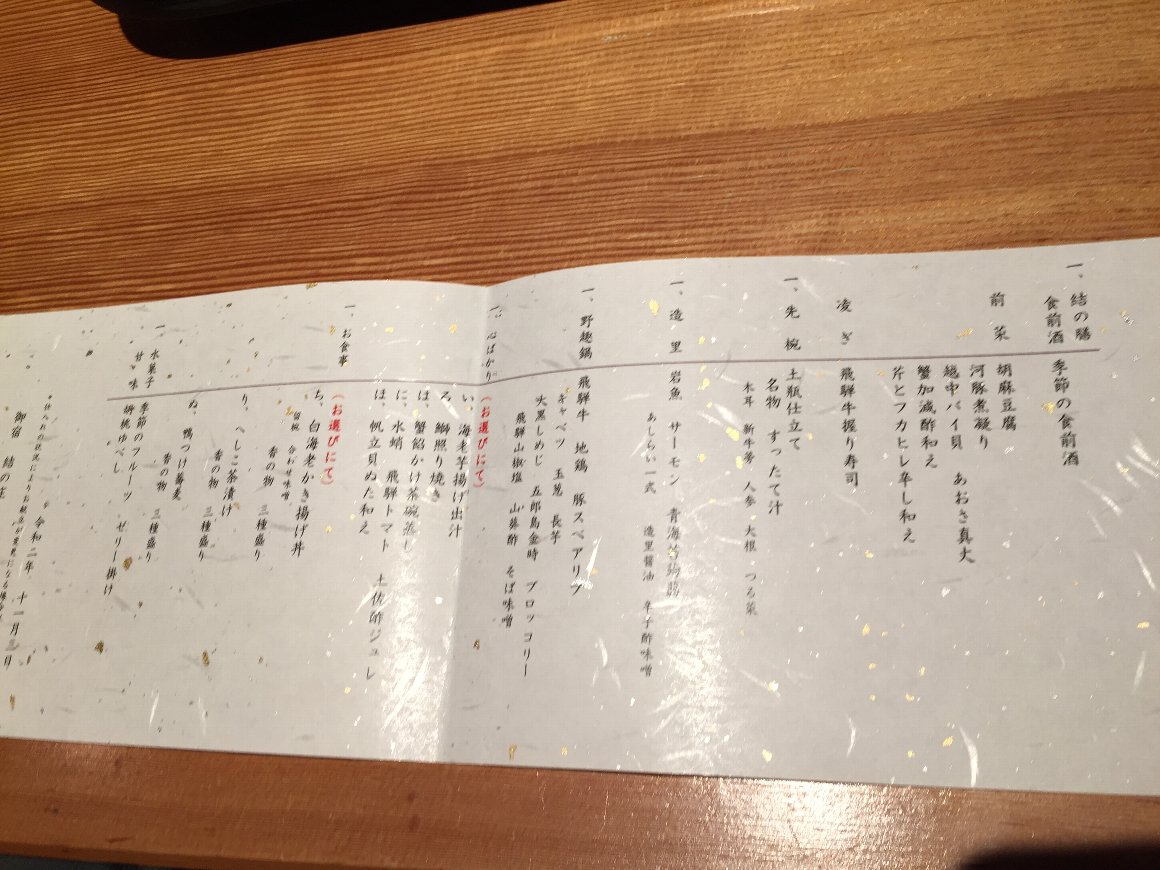 一、結の膳
食前酒　季節の食前酒
前菜　胡麻豆腐
河豚煮凝り
越中バイ貝　あおさ真丈
蟹加減酢和え
芥とフカヒレ辛し和え
凌ぎ　飛騨牛握り寿司
一、先椀　土瓶仕立て
名物　すったて汁
木耳　新牛蒡　人参　大根　つる菜
一、造里　岩魚　サーモン　青海
あしらい一式　造里醤油　辛子酢味噌
一、野趣鍋　飛騨牛　地鶏　豚スペアリブ
キャベツ　玉葱　長芋
大黒しめじ　五郎島金時　ブロッコリー
飛騨山椒塩　山葵酢　そば味噌
一、心ばかり　(お選びにて)
い、海老芋揚げ出汁
ろ、鰤照り焼き
は、蟹餡かけ茶碗蒸し
に、水蛸　飛騨トマト　土佐酢ジュレ
ほ、帆立貝ぬた和え
一、お食事　(お選びにて)
ち、白海老かき揚げ丼
留椀　合わせ味噌
香の物　三種盛り
り、へしこ茶漬け
香の物　三種盛り
ぬ、鴨つけ蕎麦
香の物　三種盛り
一、水菓子　季節のフルーツ　ゼリー掛け
甘味　胡桃ゆべし
令和二年　十一月
御宿　結の庄